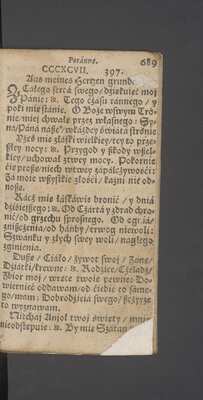 Poránne. 689
CCCXCVII. 397.
Aus meines Hertzen grunde
Z Cáłego sercá swego / dziękuięć moj
Pánie: ꝛc. Tego czásu ránnego / y
poki mie stánie. O Boże w swym Tronie /
niey chwałę przez własnego: Syná
Páná násze / w káżdey świátá stronie
łáski wielkiey / tey to przeszłey
nocy: ꝛc. Przygod y szkody wszelkiey /
uchował ztwey mocy. Pokornie
ćie proszę / niech wytrwę zápálczywości:
Zá moie wszystkie złości / káźni nie odnoszá.
Rácż mię łáskáwie bronić / y dniá
dźiśieyszego: ꝛc. Od Czártá y zdrád chronić /
od grzechu sprosnego. Od ogniá /
zniszczenia / od háńby / trwog niewoli:
Szwánku y złych swey woli / nagłego
zginienia.
Duszę / Ciáło / żywot swoj / Żonę /
Dźiatki / krewne: ꝛc. Rodzice / Czeladz /
Zbior moj / w ręce twoie pewne: Dowierność
oddawam / od ćiebie to sámego /
mam: Dobrodzieiá swego / szczyrze
to wyznawam.
Niechay Anjoł twoj święty / mnie
nieodstępuie: ꝛc. By mię Szátan